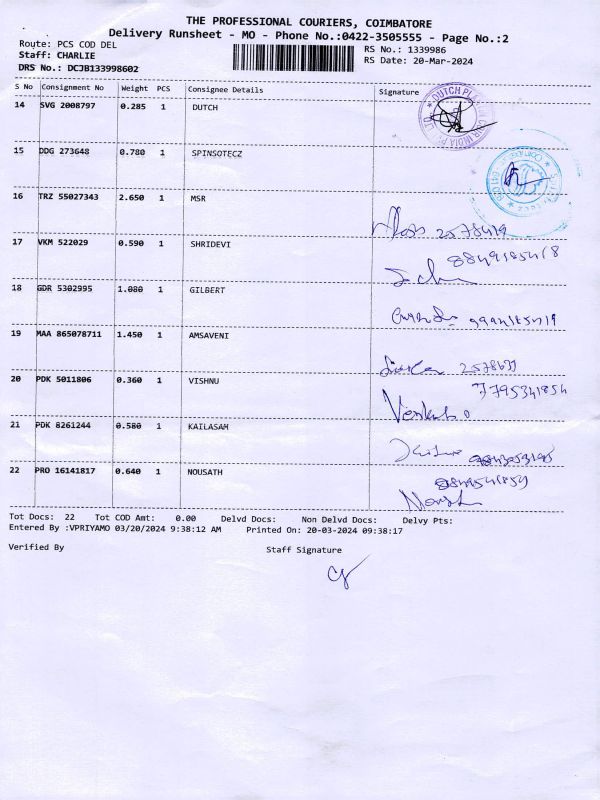 THE PROFESSIONAL COURIERS, COIMBATORE
Delivery Runsheet - MO - Phone No.:0422-3505555 - Page No.:2
Route: PCS COD DEL
RS No.: 1339986
Staff: CHARLIE
RS Date: 20-Mar-2024
DRS No.: DCJB133998602
S No Consignment No Weight PCS Consignee Details Signature
14 SVG 2008797 0.285 1 DUTCH
15 DDG 273648 0.780 1 SPINSOTECZ
16 TRZ 55027343 2.650 1 MSR
2578419
17 VKM 522029 0.590 1 SHRIDEVI
18 GDR 5302995 1.080 1 GILBERT
19 MAA 865078711 1.450 1 AMSAVENI
20 PDK 5011806 0.360 1 VISHNU
7795341854
21 PDK 8261244 0.580 1 KAILASAM
22 PRO 16141817 0.640 1 NOUSATH
Tot Docs: 22 Tot COD Amt: 0.00 Delvd Docs: Non Delvd Docs: Delvy Pts:
Entered By :VPRIYAMO 03/20/2024 9:38:12 AM Printed On: 20-03-2024 09:38:17
Verified By Staff Signature